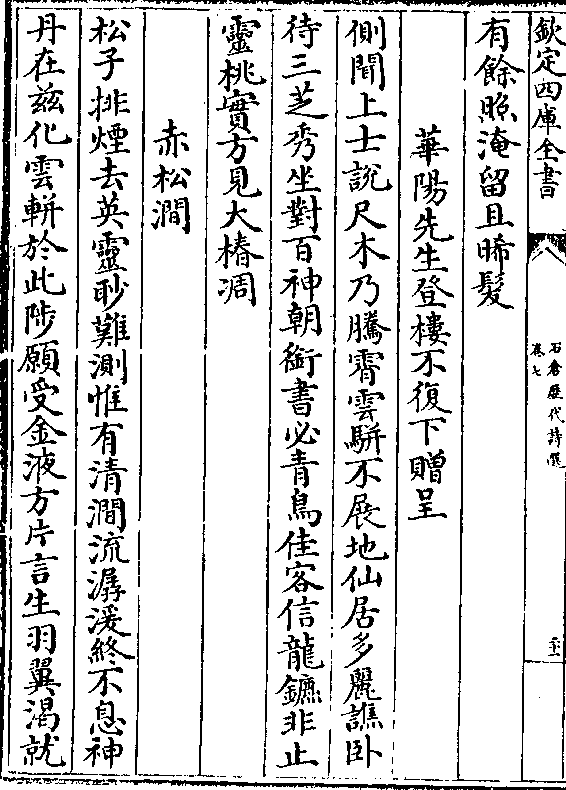 欽定四庫全書
石倉歷代詩選
卷七
有餘照淹留且晞髮
華陽先生登樓不復下贈呈
側聞上士說尺木乃騰霄雲駢不展地仙居多麗譙卧
待三芝秀坐對百神朝銜書必青鳥佳客信龍鑣非止
靈桃實方見大椿凋
赤松澗
松子排煙去英靈眇難測惟有清澗流潺湲終不息神
丹在兹化雲輧於此陟願受金液方片言生羽翼渴就